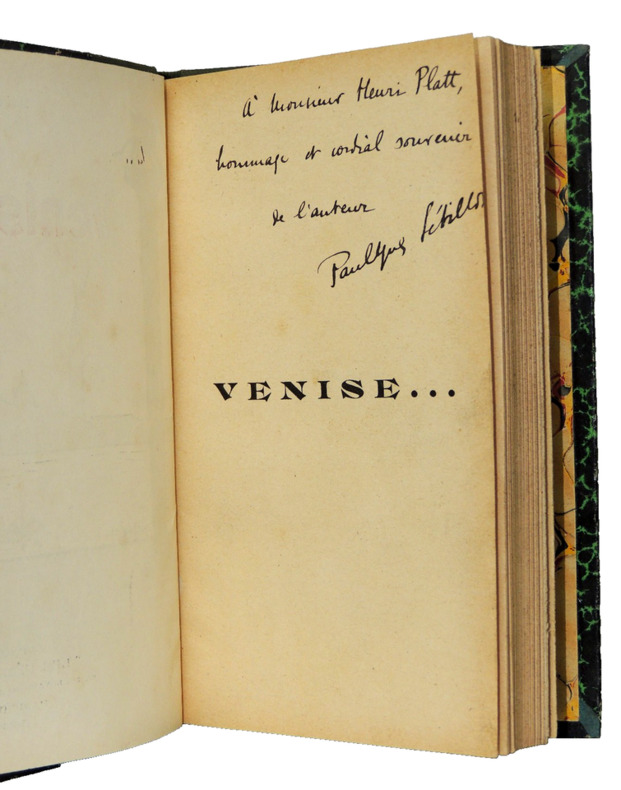 À Monsieur Henri Platt,
hommage et cordial souvenir
de l'auteur
Paul Yves Sébillot
VENISE...